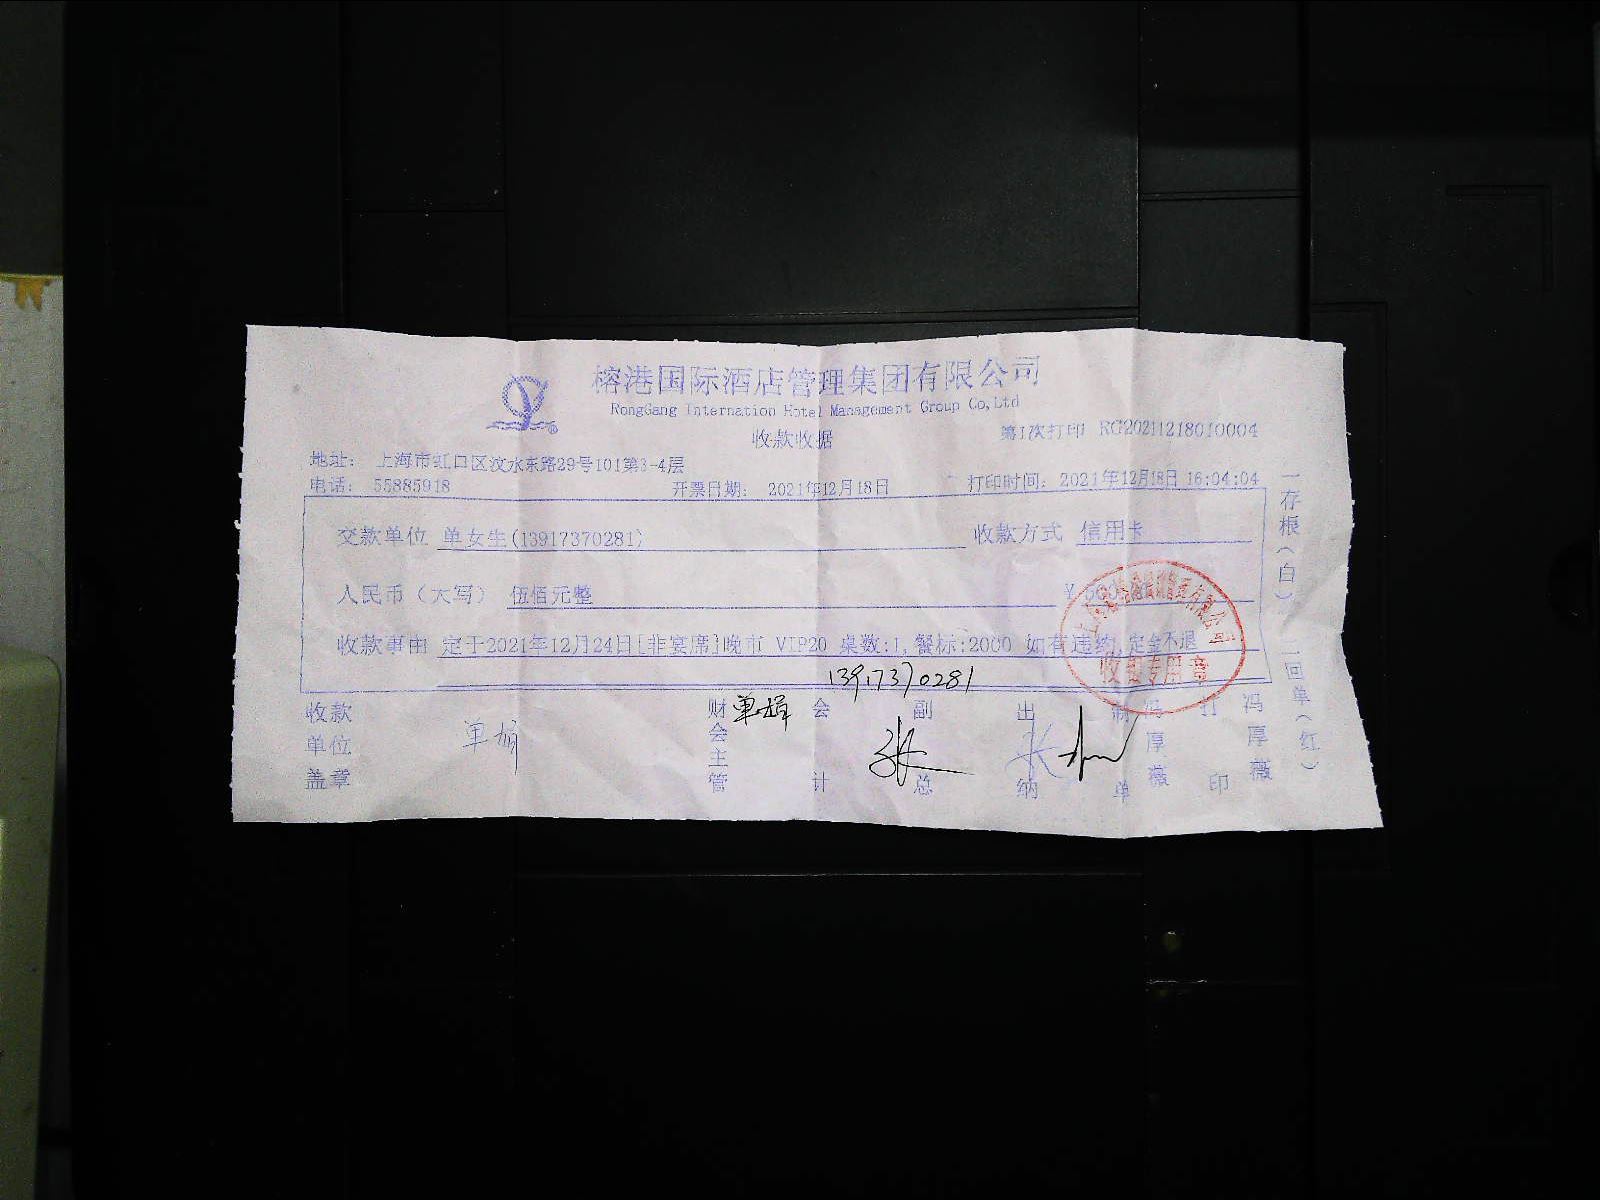 榕港国际酒店管理集团有限公司
RongGang Internation Hotel Management Group Co,Ltd
收款收据
第1次打印 RG20211218010004
地址： 上海市虹口区汶水东路29号101第3-4层
电话： 55885918 开票日期： 2021年12月18日 打印时间：2021年12月18日 16:04:04
交款单位 单女生(13917370281) 收款方式 信用卡
人民币（大写） 伍佰元整
收款事由 定于2021年12月24日[非宴席]晚市 VIP20 桌数:1,餐标:2000 如有违约,定金不退
收银专用章
13917370281
收款单位盖章
财会主管
会计
副总
张
出纳
制单 冯厚薇
打印 冯厚薇
一存根（白）二回单（红）